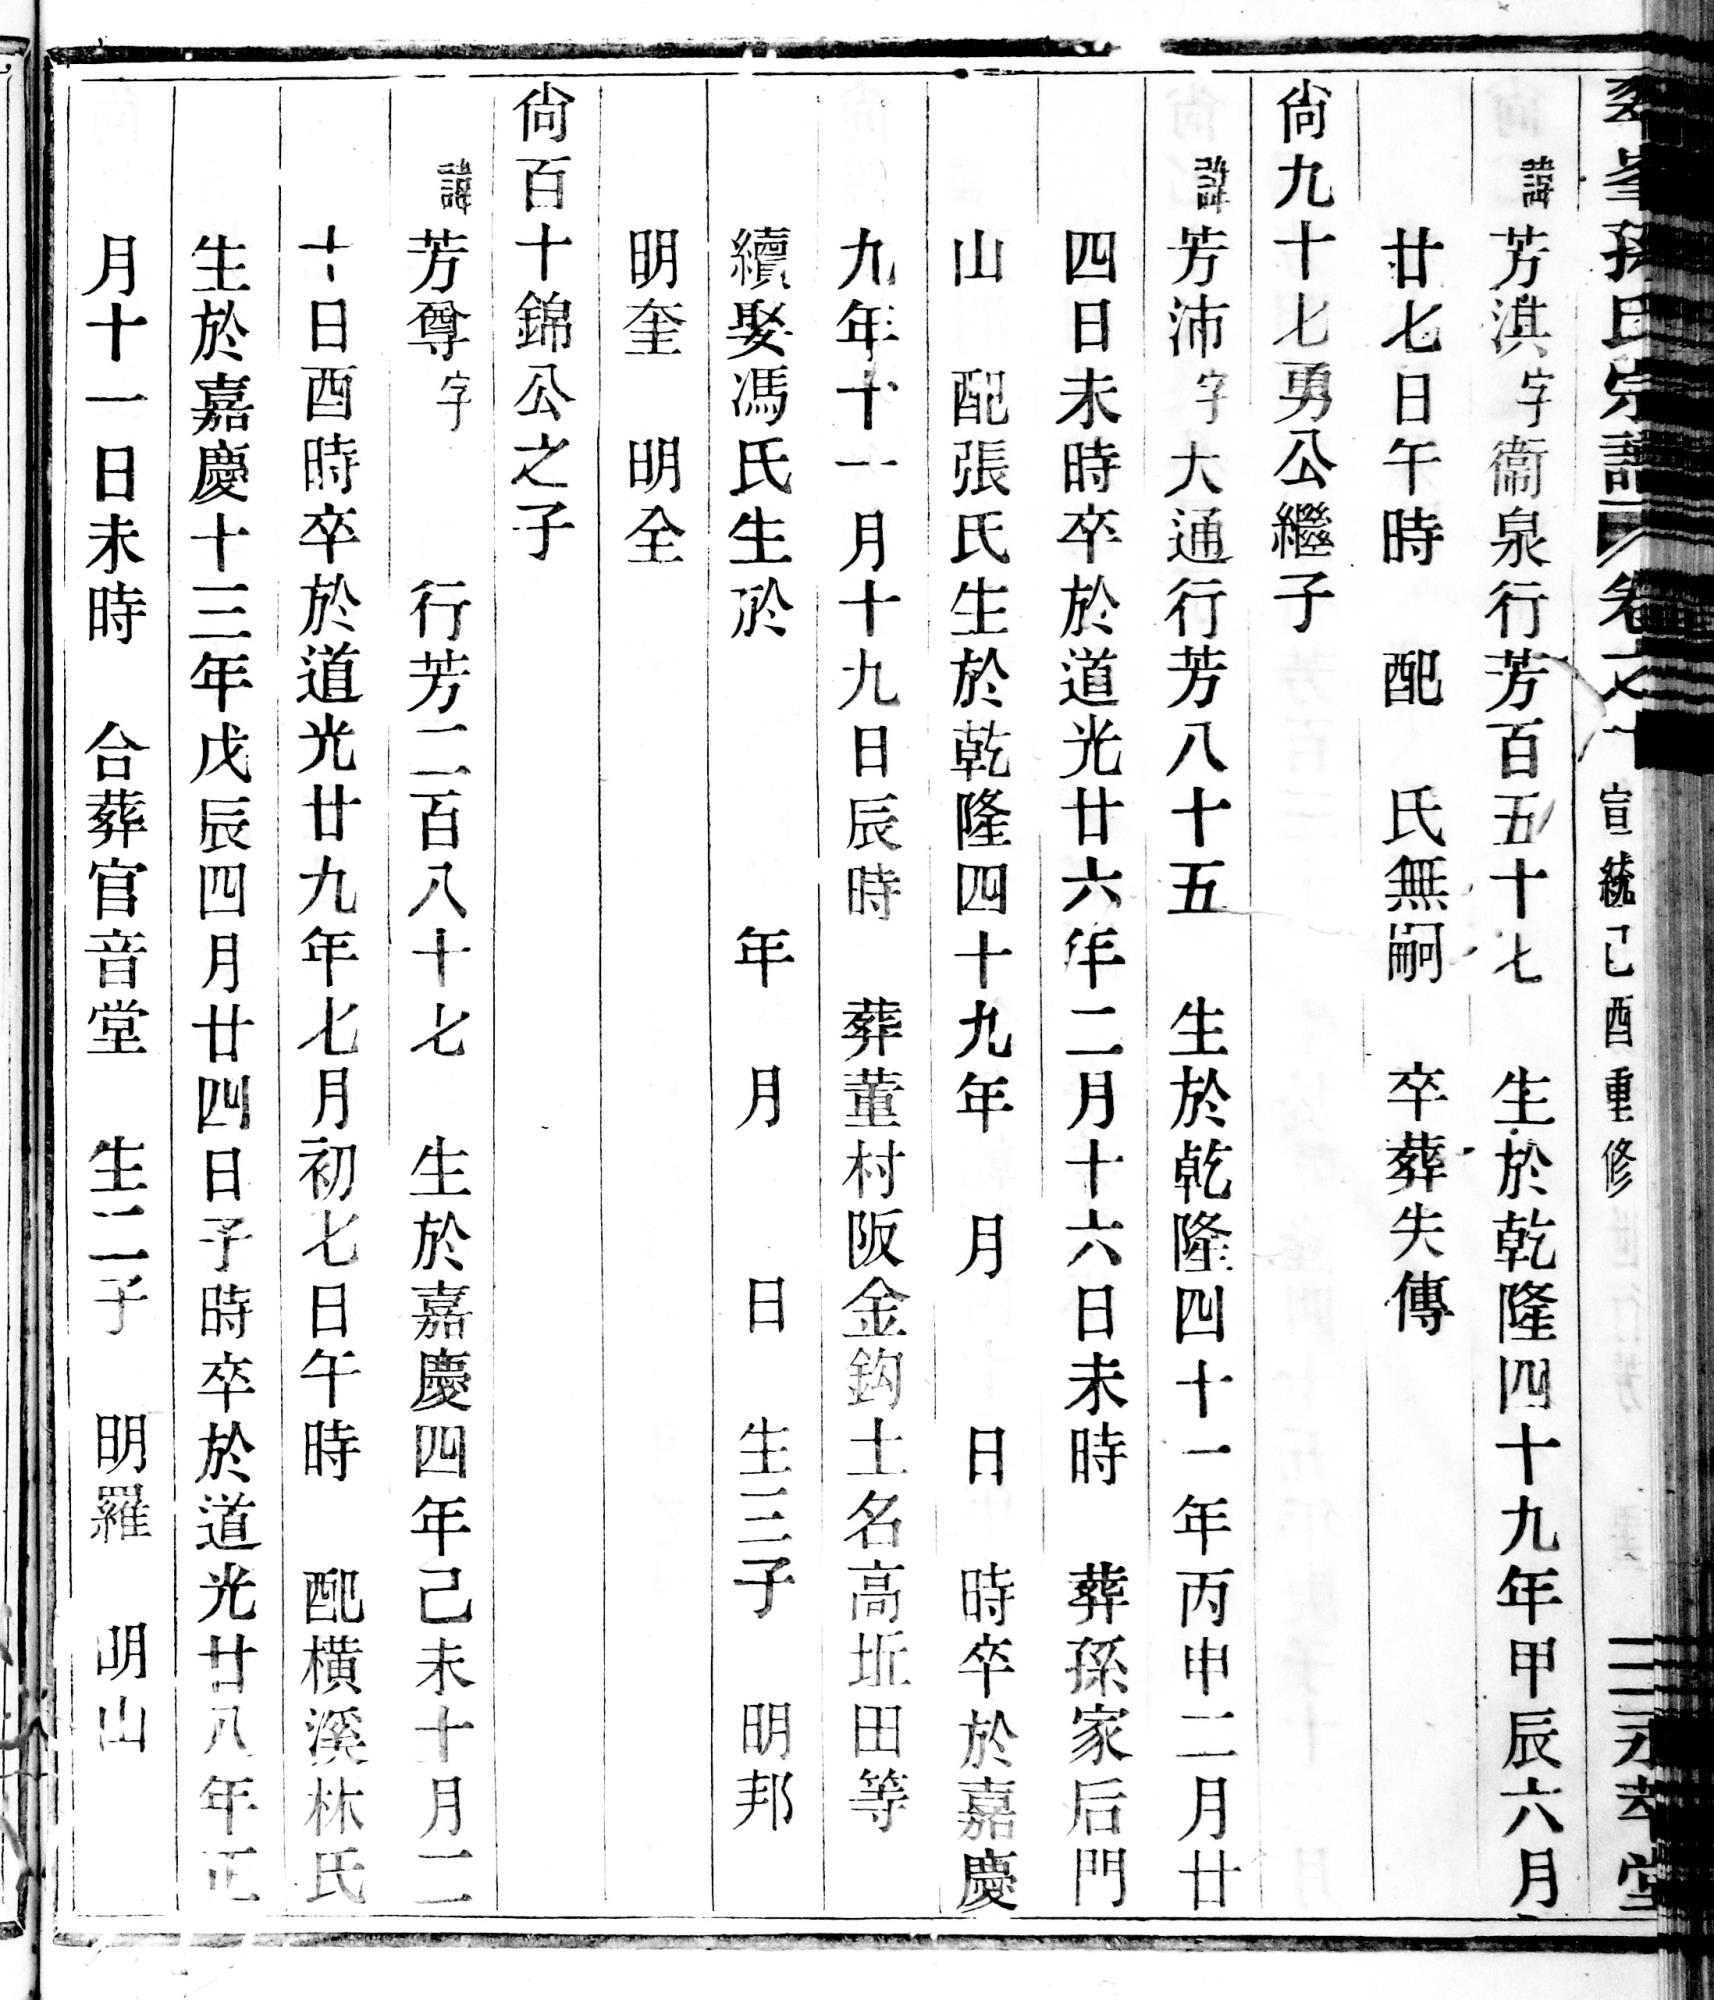 孫氏宗譜 卷之十 宣統己酉重修 堂
諱芳淇字衞泉行芳百五十七 生於乾隆四十九年甲辰六月
廿七日午時 配 氏無嗣 卒葬失傳
尙九十七勇公繼子
諱芳沛字大通行芳八十五 生於乾隆四十一年丙申二月廿
四日未時卒於道光廿六年二月十六日未時 葬孫家后門
山 配張氏生於乾隆四十九年 月 日 時卒於嘉慶
九年十一月十九日辰時 葬董村阪金鈎土名高坵田等
續娶馮氏生於 年 月 日 生三子 明邦
明奎 明全
尙百十錦公之子
諱芳尊字 行芳二百八十七 生於嘉慶四年己未十月二
十日酉時卒於道光廿九年七月初七日午時 配橫溪林氏
生於嘉慶十三年戊辰四月廿四日子時卒於道光廿八年正
月十一日未時 合葬官音堂 生二子 明羅 明山